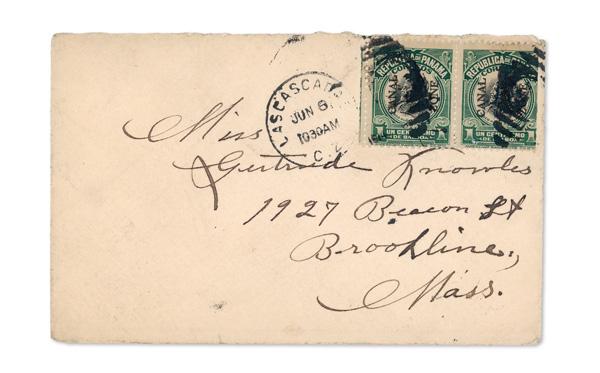 LAS CASCADAS
JUN 6
1030AM
C. Z.
REPUBLICA DE PANAMA
CORREOS
CANAL ZONE
1 UN CENTESIMO 1
DE BALBOA
REPUBLICA DE
CORREOS
CANAL ZONE
1 UN CENTESIMO 1
DE BALBOA
Miss
Gertrude Knowles
1927 Beacon St
Brookline,
Mass.